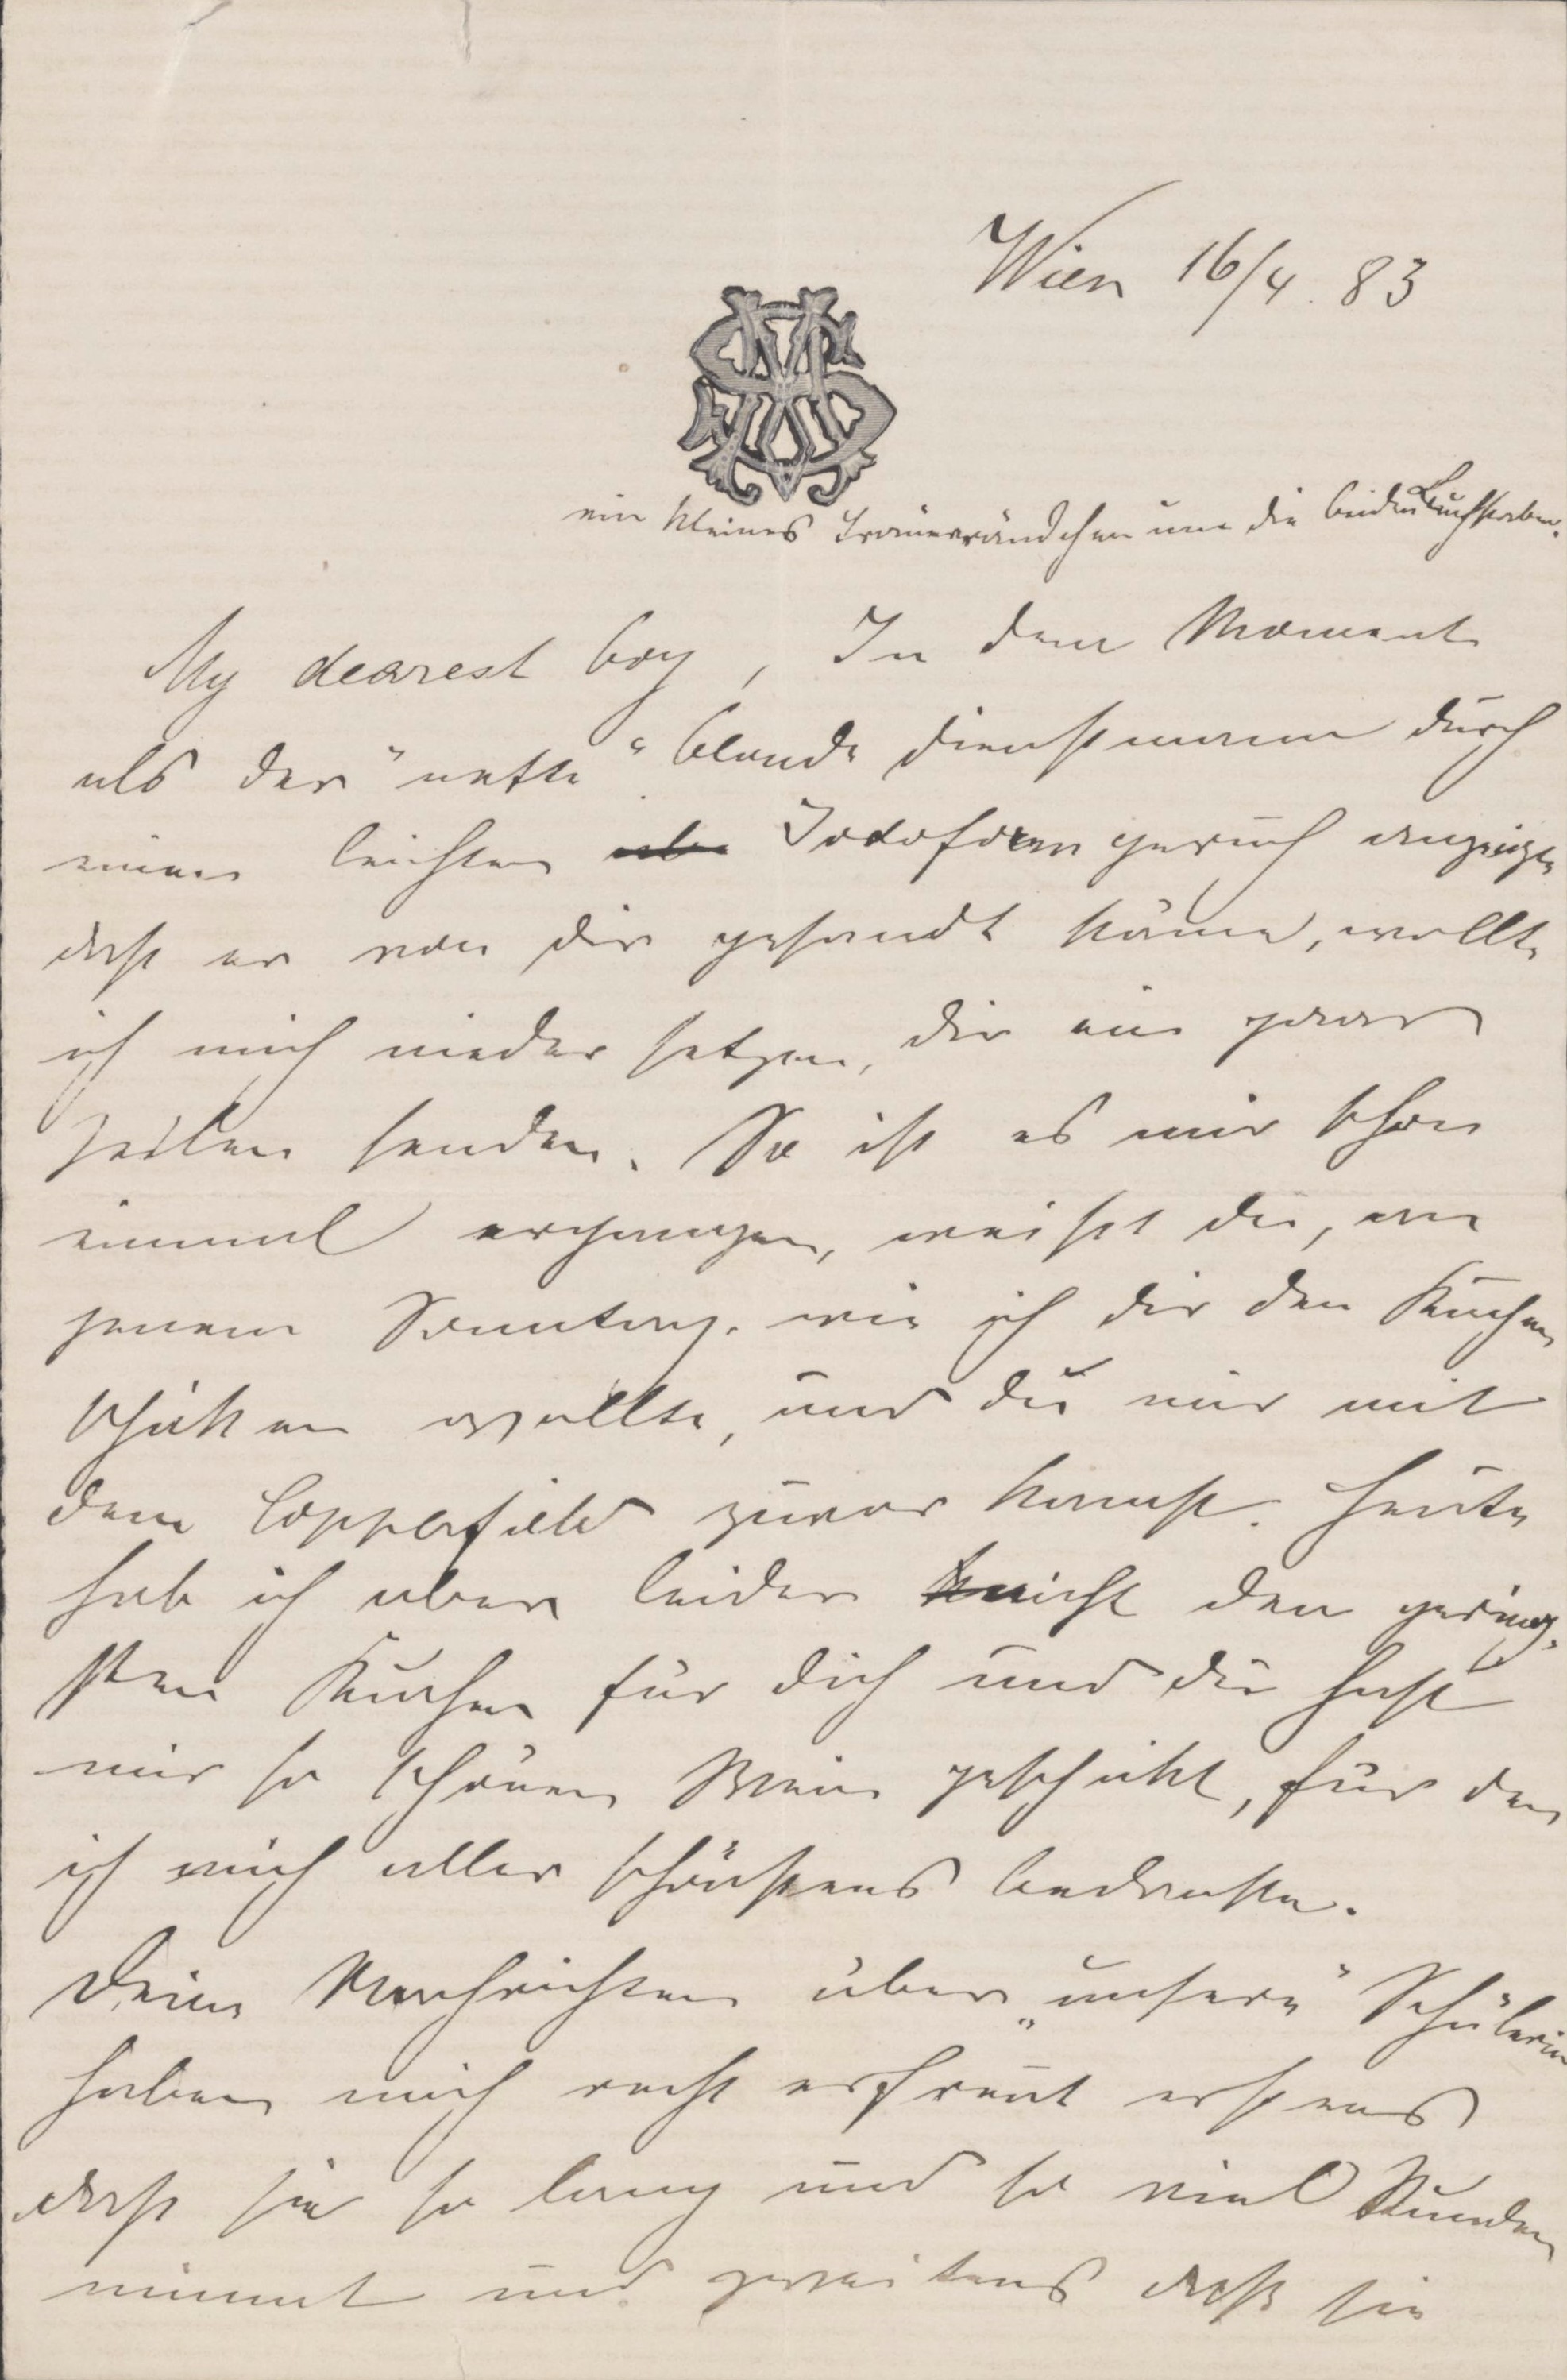 Wien 16/4. 83
ein kleines Trauerrändchen um die beiden Buchstaben.
My dearest boy, In dem Moment
als der "nette" blonde Dienstmann durch
einen leichten Jodoformgeruch anzeigte
daß er von dir gesandt käme, wollte
ich mich nieder setzen, dir ein paar
Zeilen senden. So ist es mir schon
einmal ergangen, weißt du, an
jenem Sonntag. wie ich dir den Kuchen
schiken wollte, und du mir mit
dem Copperfield zuvor kamst. Heute
hab ich aber leider nicht den gering-
sten Kuchen für dich und du hast
mir so schönen Wein geschikt, für den
ich mich aller schönstens bedanke.
Deine Nachrichten über „unsere" Schülerin
haben mich recht erfreut erstens
daß sie so lang und so viel Stunden
nimmt und zweitens daß sie